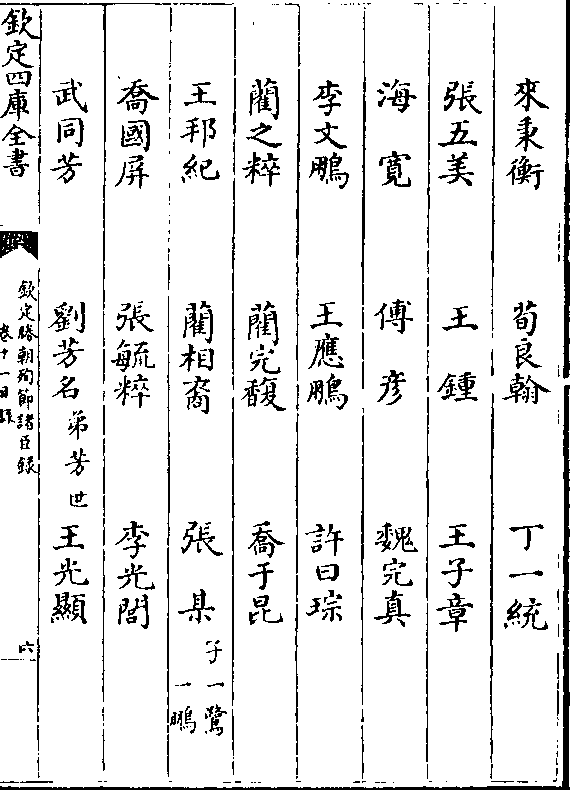 來秉衡 荀良翰 丁一統
張五美 王鍾 王子章
海寛 傅彦 魏完真
李文鵬 王應鵬 許曰琮
藺之粹 藺完馥 喬于昆
王邦紀 藺相裔 張杲 子一鷺 一鵬
喬國屏 張毓粹 李光閭
武同芳 劉芳名 弟芳世 王光顯
欽定四庫全書
欽定勝朝殉節諸臣錄
卷十一目錄
六